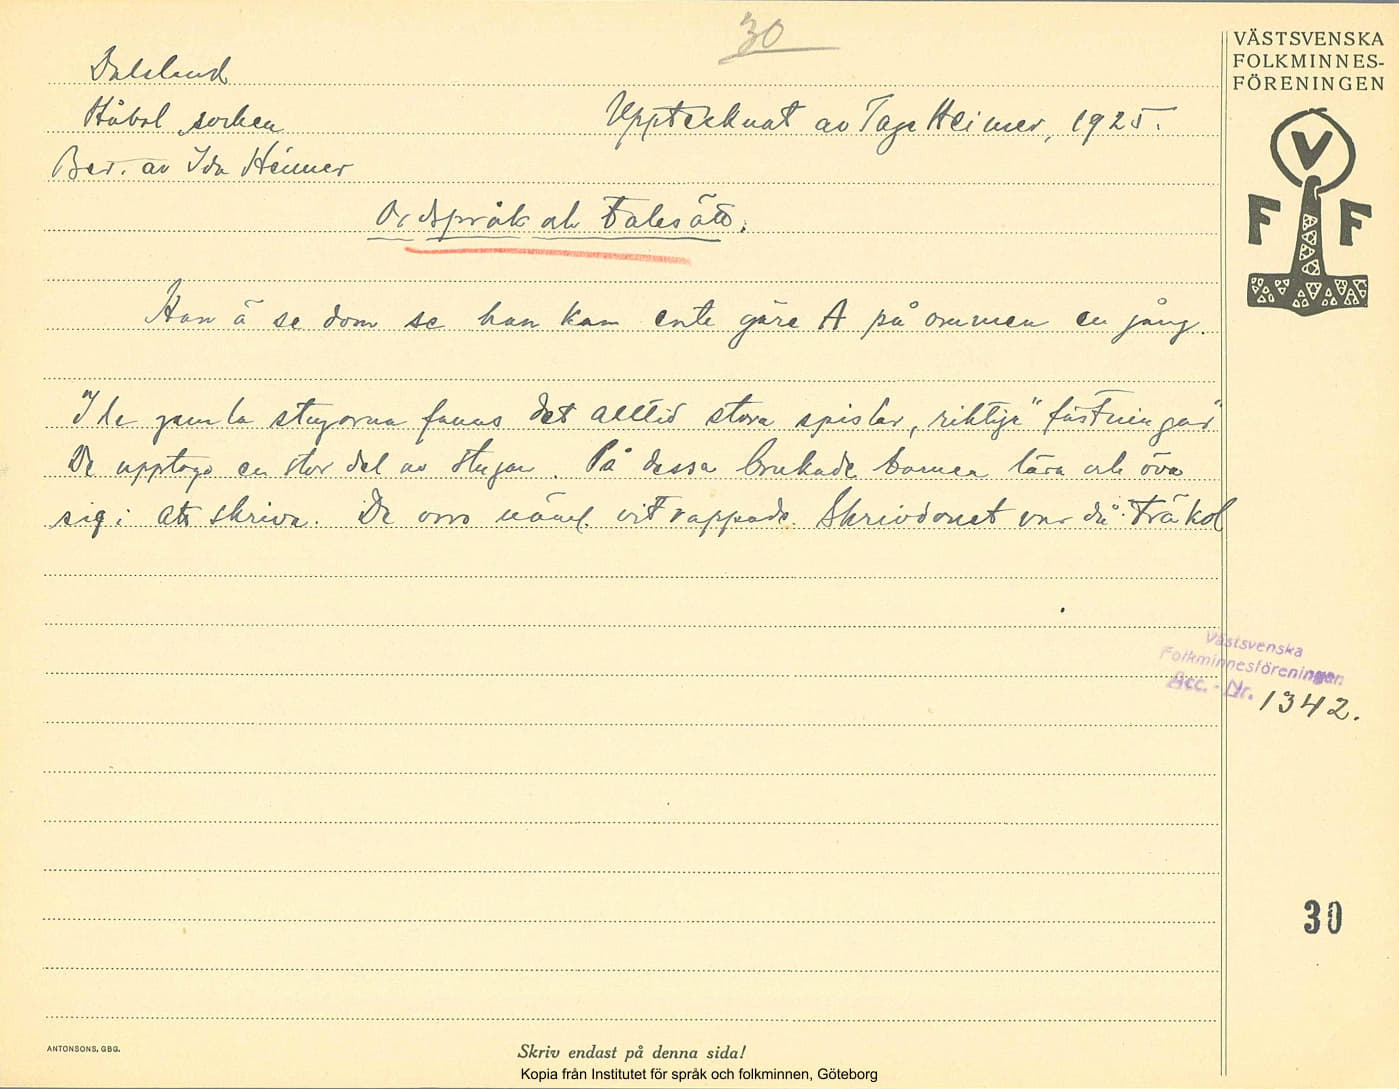 30
VÄSTSVENSKA
FOLKMINNES-
FÖRENINGEN
V
F F
Dalsland
Håbol socken
Upptecknat av Tage Heimer, 1925.
Ber. av Ida Heimer
Ordspråk och Talesätt.
Han ä se dom se han kan ente göre A på ommen en gång.
I de gamla stugorna fanns det alltid stora spislar, riktiga "fästningar"
De upptogo en stor del av stugan. På dessa brukade barnen lära och öva
sig i att skriva. De voro näml. vitrappade. Skrivdonet var då träkol
Västsvenska
Folkminnesföreningen
Acc. - Nr. 1342.
30
ANTONSONS, GBG.
Skriv endast på denna sida!
Kopia från Institutet för språk och folkminnen, Göteborg